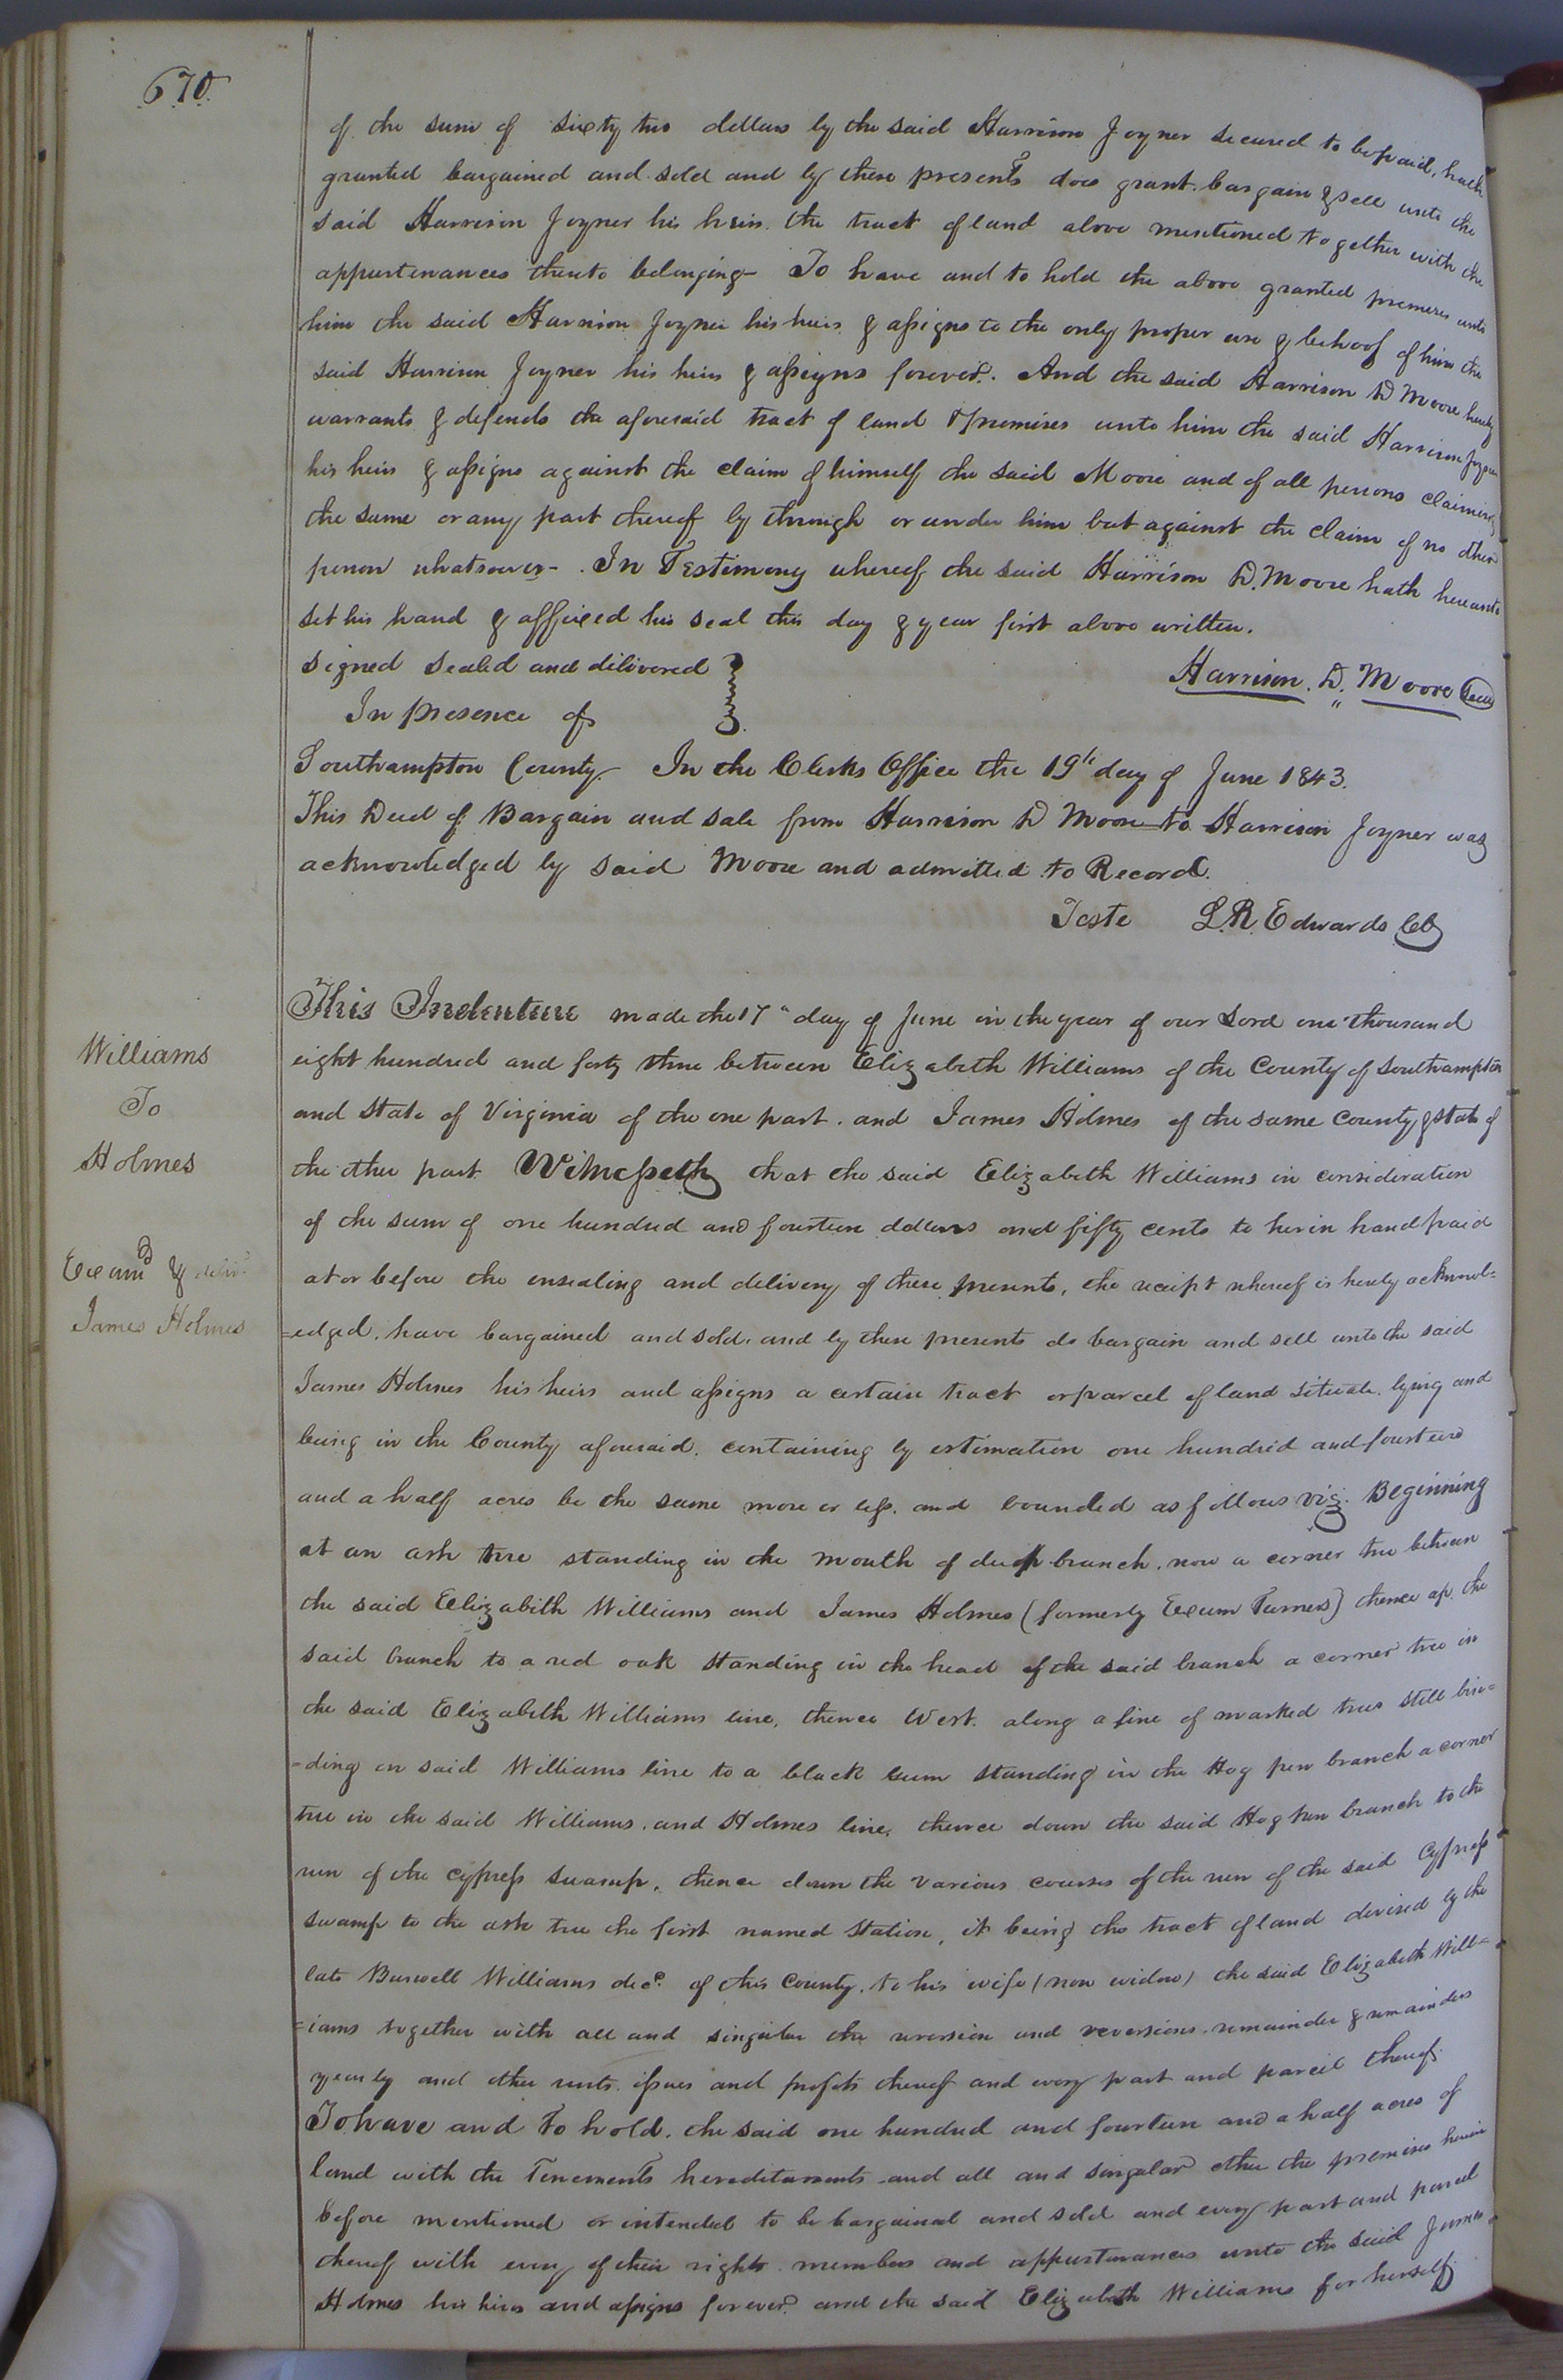 670.
of the sum of sixty two dollars by the said Harrison Joyner secured to be paid, hath
granted bargained and sold and by these presents does grant bargain & sell unto the
said Harrison Joyner his heirs the tract of land above mentioned together with the
appurtenances thereto belonging- To have and to hold the above granted premises unto
him the said Harrison Joyner his heirs & assigns to the only proper use & behoof of him the
said Harrison Joyner his heirs & assigns forever. And the said Harrison D Moore hereby
warrants & defends the aforesaid tract of land & premises unto him the said Harrison Joyner
his heirs & assigns against the claim of himself the said Moore and of all persons claiming
the same or any part thereof by through or under him but against the claim of no other
person whatsoever-. In Testimony whereof the said Harrison D. Moore hath hereunto
set his hand & affixed his seal this day & year first above written.
signed sealed and delivered
Harrison. D. Moore Seal
In presence of
Southampton County. In the Clerks Office the 19th day of June 1843.
This Deed of Bargain and sale from Harrison D Moore to Harrison Joyner was
acknowledged by said Moore and admitted to Record.
Teste L.R. Edwards Clk
Williams
To
Holmes
Examd & deliv.
James Holmes
This Indenture made the 17th day of June in the year of our Lord one thousand
eight hundred and forty three between Elizabeth Williams of the County of Southampton
and State of Virginia of the one part. and James Holmes of the same County & State of
the other part. Witnesseth that the said Elizabeth Williams in consideration
of the sum of one hundred and fourteen dollars and fifty cents to her in hand paid
at or before the ensealing and delivery of these presents, the receipt whereof is hereby acknowl=
=edged. have bargained and sold. and by these presents do bargain and sell unto the said
James Holmes his heirs and assigns a certain tract or parcel of land situate. lying and
being in the County aforesaid. containing by estimation one hundred and fourteen
and a half acres be the same more or less. and bounded as follows viz. Beginning
at an ash tree standing in the mouth of deep branch. now a corner tree between
the said Elizabeth Williams and James Holmes (formerly Exum Turners) thence up the
said branch to a red oak standing in the head of the said branch a corner tree in
the said Elizabeth Williams line, thence West. along a line of marked trees still bin=
-ding on said Williams line to a black Gum standing in the Hog pen branch a corner
tree in the said Williams. and Holmes line, thence down the said Hog pen branch to the
run of the cypress swamp, thence down the various courses of the run of the said Cypress
swamp to the ash tree the first named station, it being the tract of land devised by the
late Burwell Williams decd. of this County. to his wife (now widow) the said Elizabeth Will=
=iams together with all and singular the reversion and reversions. remainder & remainders
yearly and other rents. issues and profits thereof and every part and parcel thereof.
To have and to hold. the said one hundred and fourteen and a half acres of
land with the Tenements hereditaments and all and singular other the premises herein
before mentioned or intended to be bargained and sold and every part and parcel
thereof with every of their rights. members and appurtenances unto the said James
Holmes his heirs and assigns forever. and the said Elizabeth Williams for herself